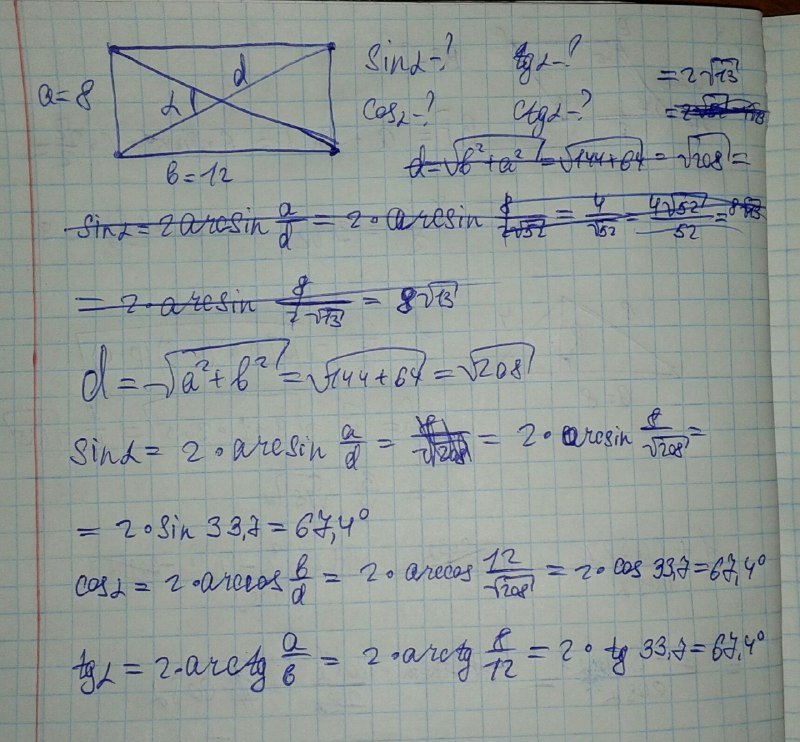 a=8
α
d
b=12
sinα-? tgα-?
cosα-? ctgα-?
=2√13
d=√b²+a² = √144+64 = √208 =
sinα = 2arcsin a/d = 2·arcsin 8/2√52 = 4/√52 = 4√52/52 =
= 2·arcsin 8/2√13 = 8√13
d = √a²+b² = √144+64 = √208
sinα = 2·arcsin a/d = = 2·arcsin 8/√208 =
= 2·sin 33,7 = 67,4°
cosα = 2·arccos b/d = 2·arccos 12/√208 = 2·cos 33,7 = 67,4°
tgα = 2·arctg a/b = 2·arctg 8/12 = 2·tg 33,7 = 67,4°